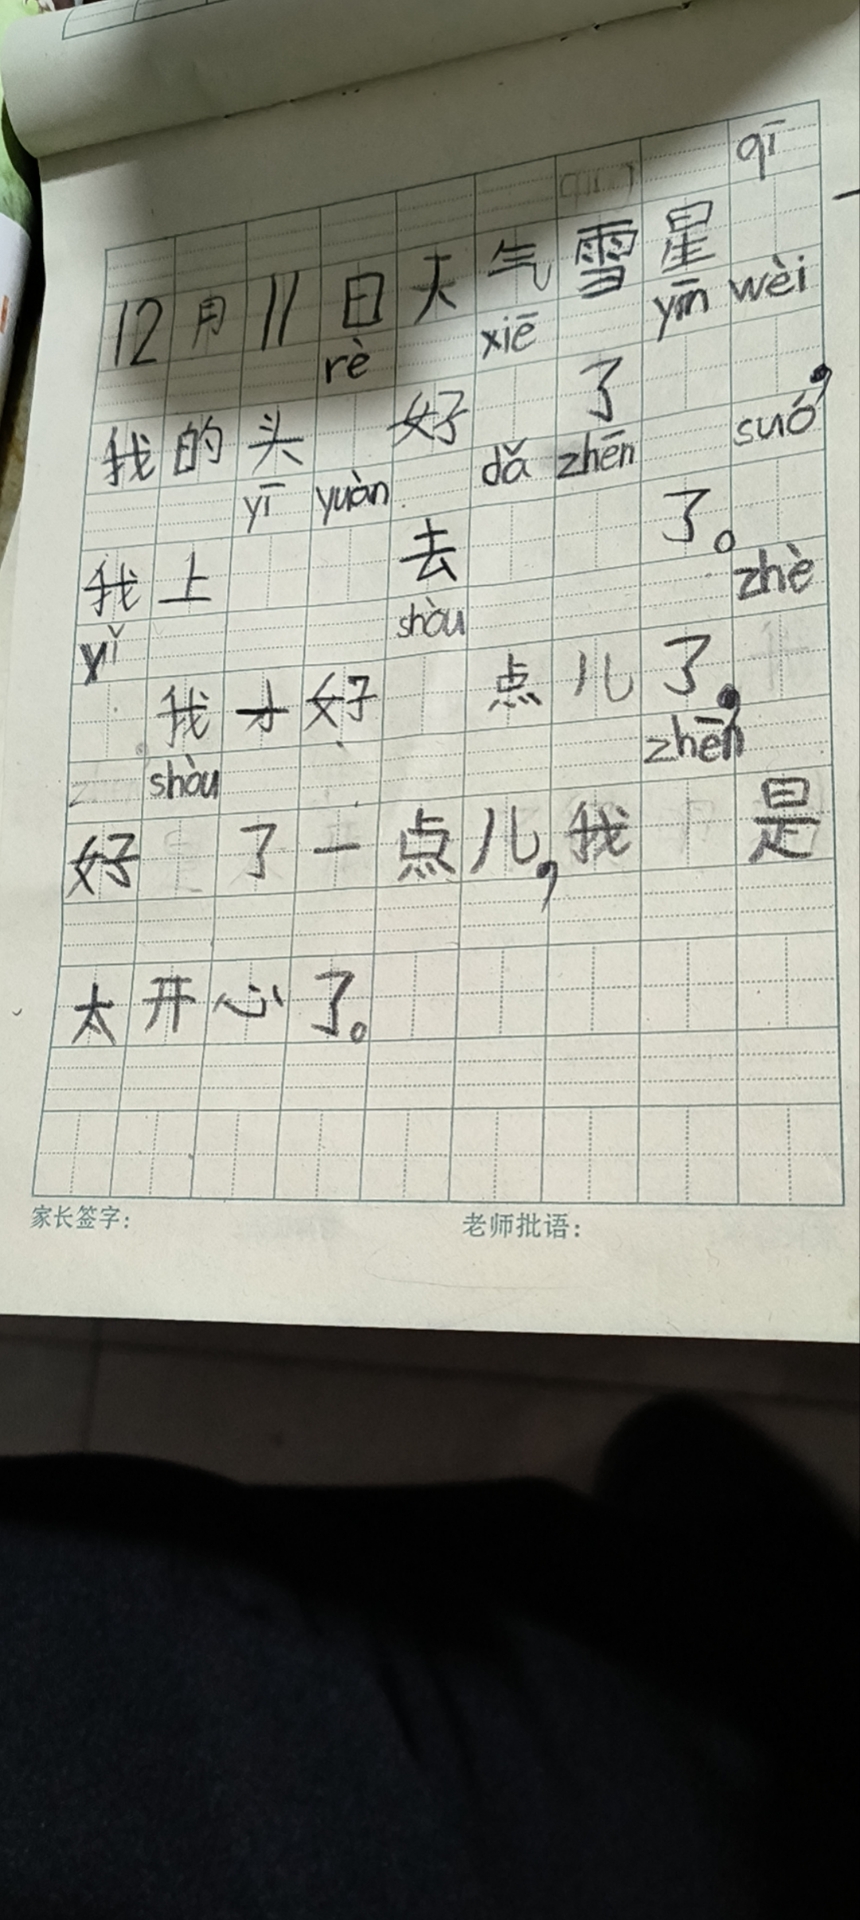 qī
12月11日天气雪星
rè xiē yīn wèi
我的头 好 了 ,
yī yuàn dǎ zhēn suó
我上 去 了。
yǐ shòu zhè
我才好 点儿了,
shòu zhēn
好 了一点儿,我 是
太开心了。
家长签字: 老师批语: